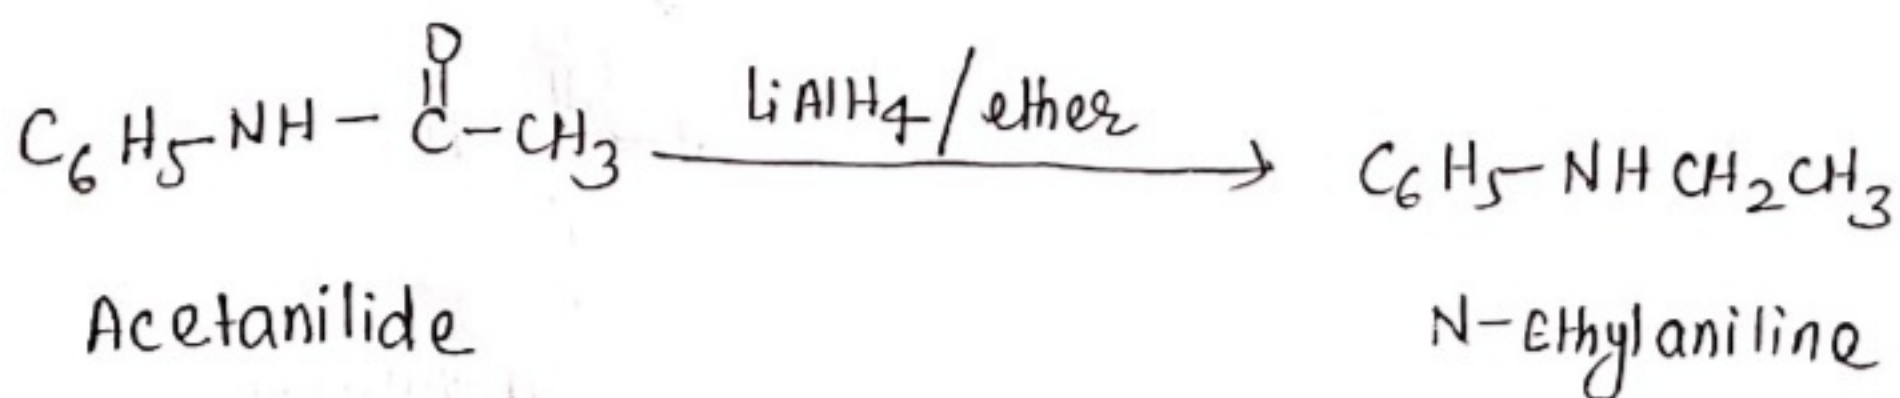 O
C6H5-NH-C-CH3 LiAlH4/ether C6H5-NHCH2CH3
Acetanilide N-Ethylaniline